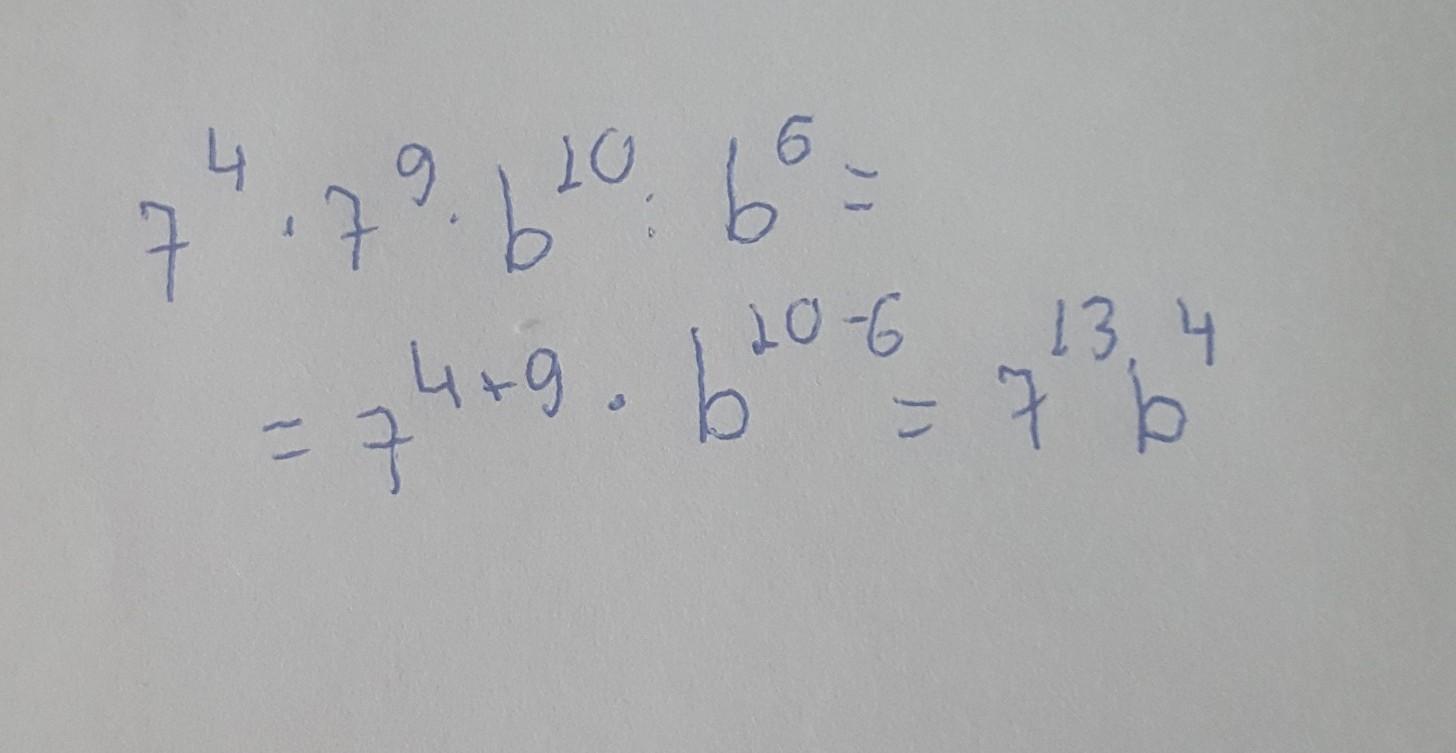 7⁴ · 7⁹ · b¹⁰ : b⁶ =
= 7⁴⁺⁹ · b¹⁰⁻⁶ = 7¹³ · b⁴